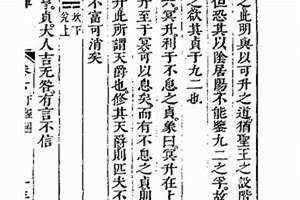 之此明與以可升之道猶聖王之設階
但恐其以陰居陽不能鑒九二之孚故
之欲其貞于九二也
六冥升利于不息之貞象曰冥升在上
升至于冥可以息矣而有不息之貞則
升此所謂天爵也修其天爵則匹夫不
不富可消矣
坎下
兌上
亨貞大人吉无咎有言不信